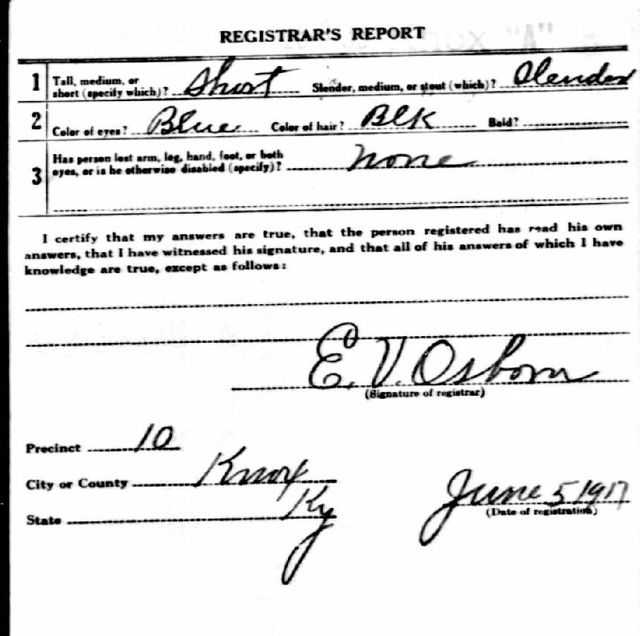 REGISTRAR'S REPORT
1 Tall, medium, or short (specify which)? Short Slender, medium, or stout (which)? Slender
2 Color of eyes? Blue Color of hair? Blk Bald?
3 Has person lost arm, leg, hand, foot, or both eyes, or is he otherwise disabled (specify)? None
I certify that my answers are true, that the person registered has read his own
answers, that I have witnessed his signature, and that all of his answers of which I have
knowledge are true, except as follows:
E. V. Osborn
(Signature of registrar)
Precinct 10
City or County Knox
State Ky
June 5 1917
(Date of registration)